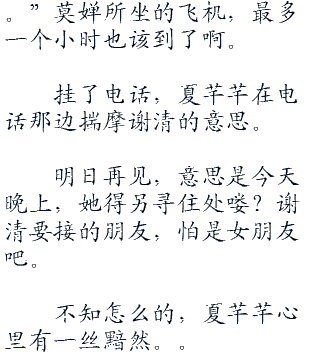 。”莫婵所坐的飞机，最多
一个小时也该到了啊。
挂了电话，夏芊芊在电
话那边揣摩谢清的意思。
明日再见，意思是今天
晚上，她得另寻住处喽？谢
清要接的朋友，怕是女朋友
吧。
不知怎么的，夏芊芊心
里有一丝黯然。。